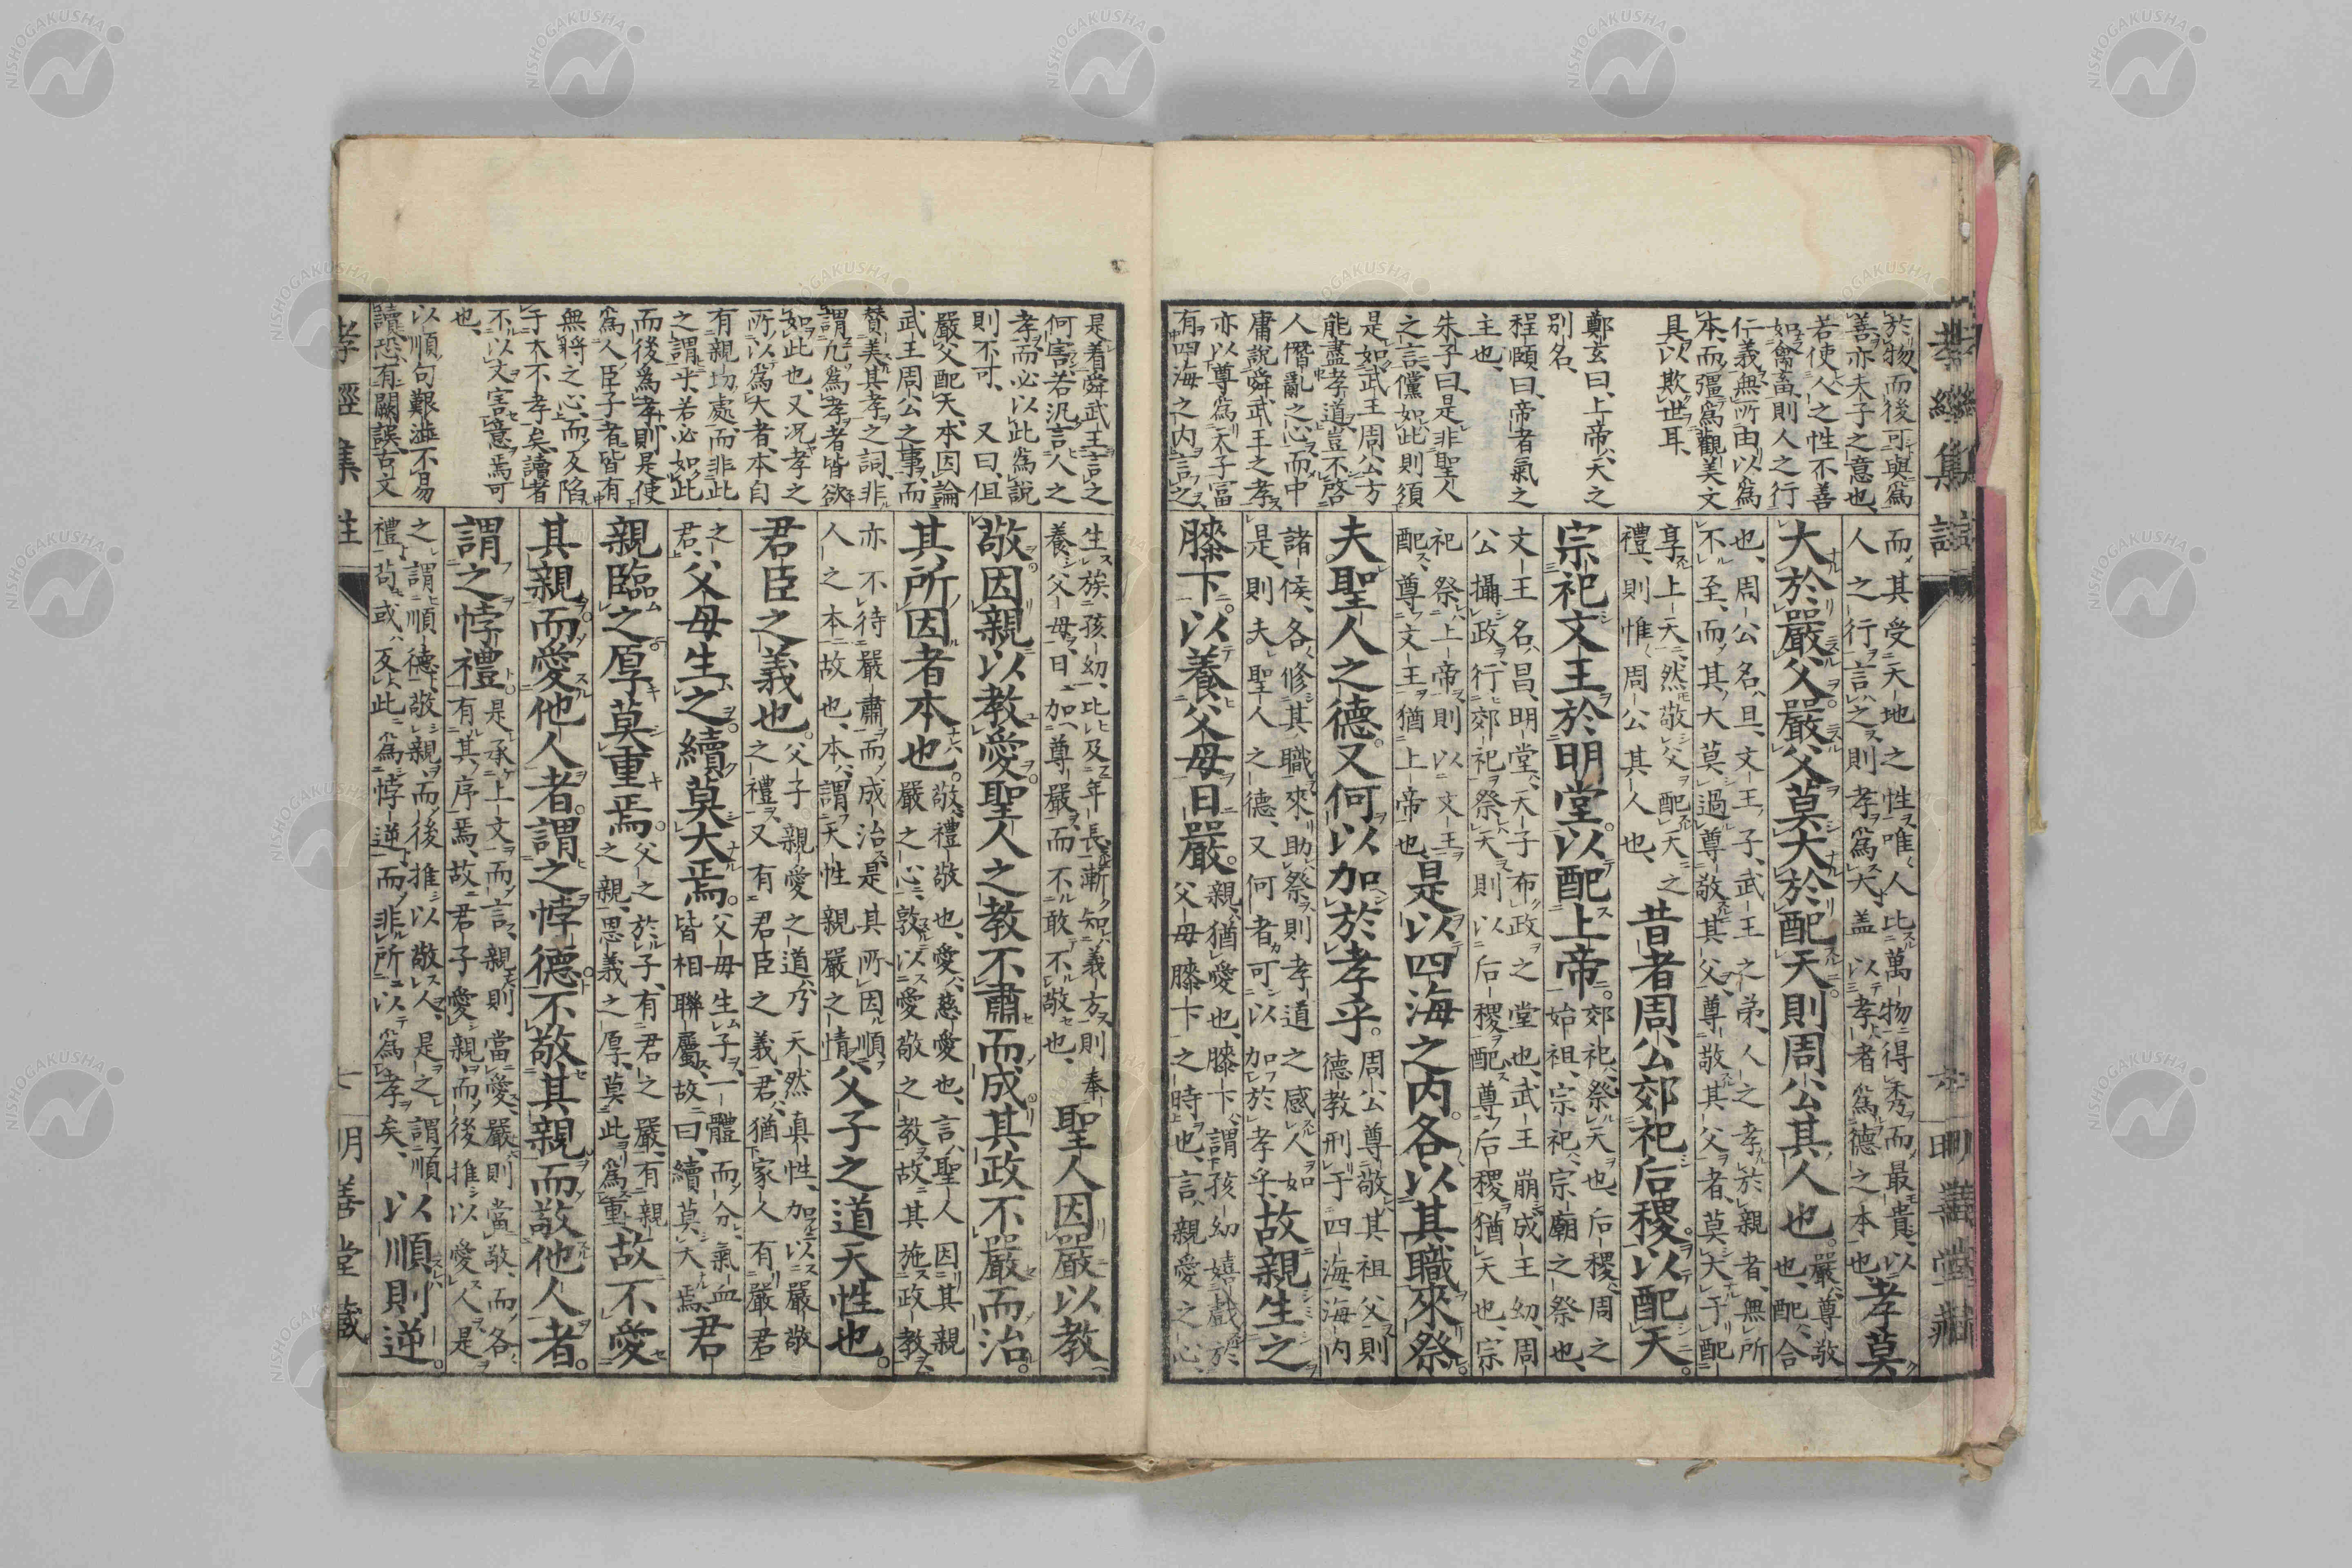 於物而後可與爲
善亦夫子之意也、
若使人之性不善
如禽畜則人之行
仁義無所由以爲
本、而彊爲觀美文
具以欺世耳、
鄭玄曰、上帝天之
別名、
程頤曰、帝者氣之
主也、
朱子曰、是非聖人
之言、儻如此則須
是如武王周公方
能盡孝道豈不啓
人僭亂之心而中
庸說舜武王之孝
亦以尊爲天子富
有四海之内言之
而其受天地之性唯人比萬物得秀而最貴以
人之行言之則孝爲大盖以孝者爲德之本也孝莫
大於嚴父嚴父莫大於配天則周公其人也。嚴尊敬
也、配合
也、周公名旦、文王子、武王之弟、人之孝於親者、無所
不至、而其大莫過尊敬其父、尊敬其父者、莫大于配
享上天、然敬父配天之
禮、則惟周公其人也、昔者周公郊祀后稷以配天。
宗祀文王於明堂以配上帝。郊祀祭天也、后稷周之
始祖、宗祀宗廟之祭也、
文王名昌、明堂天子布政之堂也、武王崩成王幼、周
公攝政、行郊祀祭天則以后稷配、尊后稷猶天也、宗
祀祭上帝則以文王
配、尊文王猶上帝也、是以四海之内各以其職來祭。
夫聖人之德又何以加於孝乎。周公尊敬其祖父則
德教刑于四海海内
諸侯、各修其職來助祭則孝道之感人如
是、則夫聖人之德又何者可以加於孝乎、故親生之
膝下。以養父母日嚴。親猶愛也、膝下謂孩幼嬉戲於
父母膝下之時也、言親愛之心、
孝經集註
明善堂藏
是着舜武王言之
何害若汎言人之
孝而必以此爲說
則不可、 又曰、但
嚴父配天本因論
武王周公之事、而
賛美其孝之詞、非
謂凡爲孝者皆欲
如此也、又况孝之
所以爲大者、本自
有親切處、而非此
之謂乎、若必如此
而後爲孝則是使
爲人臣子者皆有
無將之心、而反陷
于大不孝矣、讀者
不以文害意焉可
也、
以順句艱澁不易
讀恐有闕誤古文
生族孩幼比及年長漸知義方則
養父母、日加尊嚴而不敢不敬也、 奉聖人因嚴以教
敬因親以教愛聖人之教不肅而成其政不嚴而治。
其所因者本也。敬禮敬也、愛慈愛也、言聖人因其親
嚴之心敦以愛敬之教故其施政教
亦不待嚴肅而成治是其所因順
人之本故也、本謂天性親嚴之情父子之道天性也。
君臣之義也。父子親愛之道乃天然真性、加以嚴敬
之禮又有君臣之義、君猶家人有嚴君
之君、父母生之續莫大焉。父母生子一體而分、氣血
皆相聯屬、故曰、續莫大焉、君
親臨之厚莫重焉。父之於子、有君之嚴、有親
之親、恩義之厚莫此爲重故不愛
其親而愛他人者。謂之悖德不敬其親而敬他人者。
謂之悖禮是承上文而言、親則當愛、嚴則當敬、而各
有其序焉、故君子愛親而後推以愛人是
之謂順德、敬親而後推以敬人、是之謂順
禮苟或反此爲悖逆而非所以爲孝矣、以順則逆。
孝經集註
七
明善堂藏